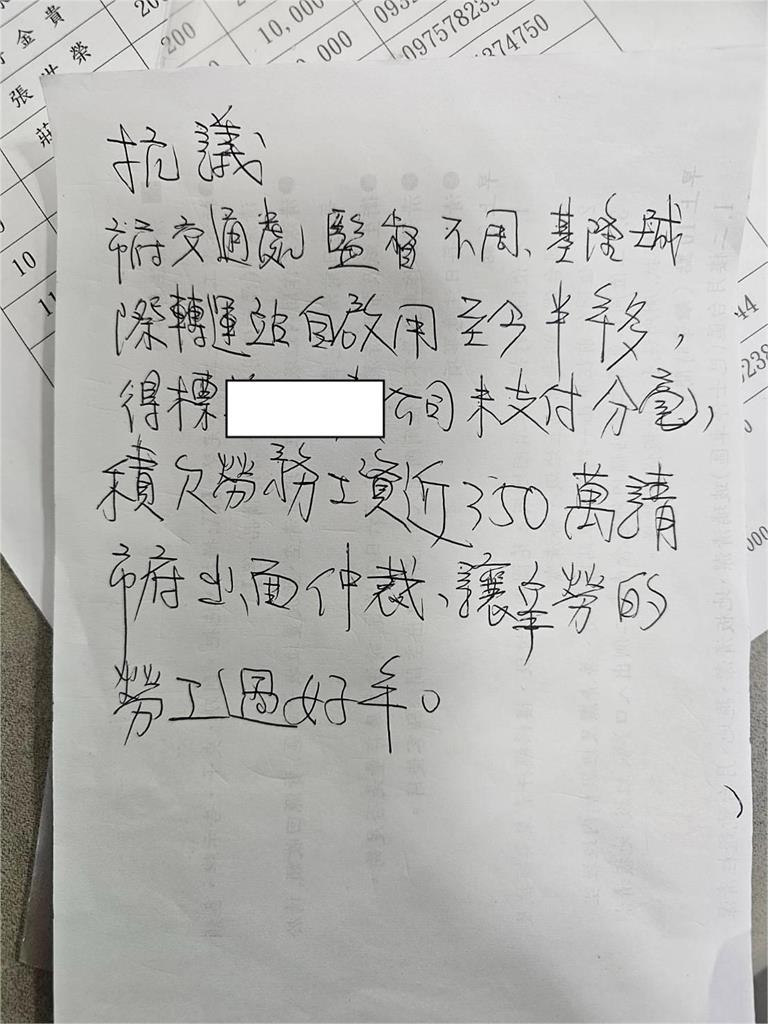 金貴
200
10,000
張世榮
200
0,000
097578233
莊
374750
10
11
抗議、
市府交通處監督不周、基隆城
際轉運站自啟用至今半年多,
得標 公司未支付分毫,
積欠勞務工資近350萬請
市府出面仲裁、讓辛勞的
勞工過好年。